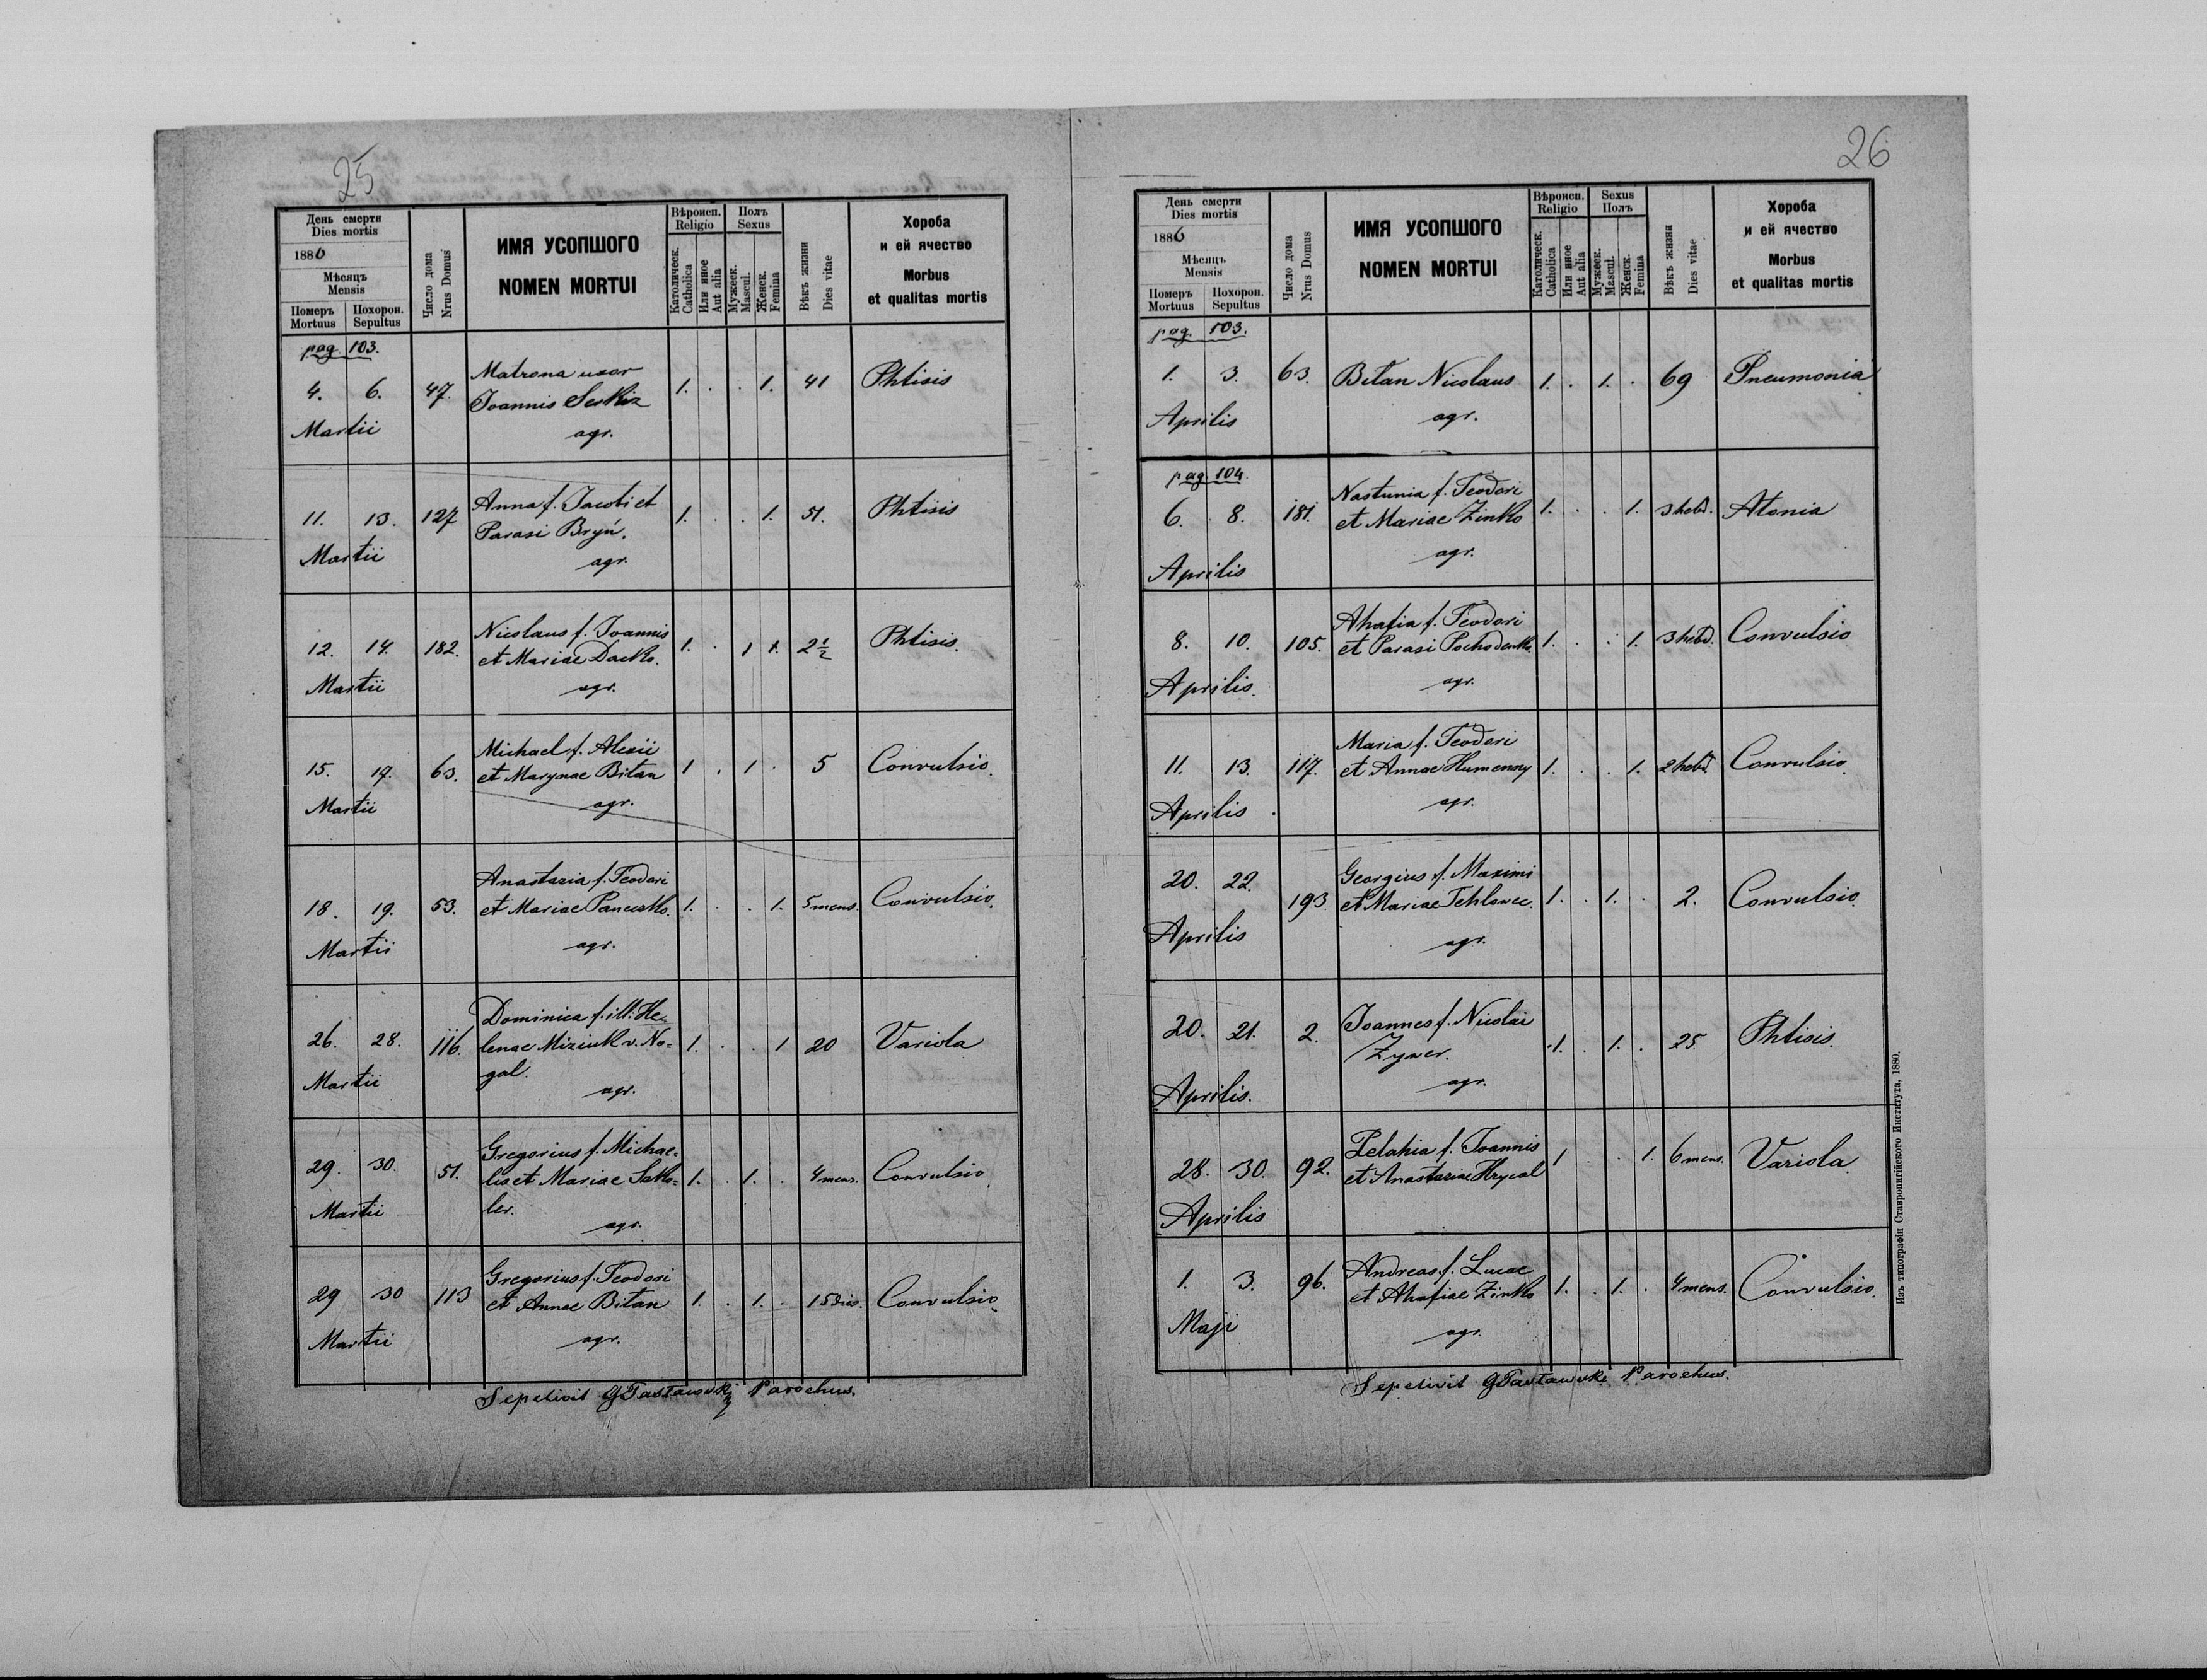 25
День смерти
Dies mortis
1886
Мѣсяцъ
Mensis
Померъ Mortuus
Похорон. Sepultus
Число дома
Nrus Domus
ИМЯ УСОПШОГО
NOMEN MORTUI
Вѣроисп.
Religio
Католическ.
Catholica
Или иное
Aut alia
Полъ
Sexus
Мужеск.
Mascul.
Женск.
Femina
Вѣкъ жизни
Dies vitae
Хороба
и ей ячество
Morbus
et qualitas mortis
pag. 103.
Matrona uxor
4. 6. 47. Joannis Serkiz 1. . . 1. 41 Phtisis
Martii agr.
Anna f. Jacobi et
11. 13. 127 Parasi Bryń. 1. . . 1. 51. Phtisis
Martii agr.
Nicolaus f. Joannis
12. 14. 182. et Mariae Dacko. 1. . 1 1. 2 1/2 Phtisis.
Martii agr.
Michael f. Alexii
15. 17. 63. et Marynae Bitan 1 . 1 . 5 Convulsio.
Martii agr.
Anastazia f. Teodori
18. 19. 53. et Mariae Panecsko. 1. . . 1. 5 mens. Convulsio.
Martii agr.
Dominica f. ill. He-
26. 28. 116. lenae Miziuk v. No= 1. . . 1 20 Variola
gal.
Martii agr.
Gregorius f. Michae=
29. 30. 51. lis et Mariae Sako= 1. . 1. . 4 mens. Convulsio.
ler.
Martii agr.
Gregorius f. Teodori
29 30 113 et Annae Bitan 1. . 1. . 15 dies. Convulsio
Martii agr.
Sepelivit Parochus.
26
День смерти
Dies mortis
1886
Мѣсяцъ
Mensis
Померъ Mortuus
Похорон. Sepultus
Число дома
Nrus Domus
ИМЯ УСОПШОГО
NOMEN MORTUI
Вѣроисп.
Religio
Католическ.
Catholica
Или иное
Aut alia
Sexus
Полъ
Мужеск.
Mascul.
Женск.
Femina
Вѣкъ жизни
Dies vitae
Хороба
и ей ячество
Morbus
et qualitas mortis
pag. 103.
1. 3. 63. Bitan Nicolaus 1. . 1. . 69 Pneumonia
Aprilis agr.
pag. 104.
Nastunia f. Teodori
6. 8. 181. et Mariae Zinko 1. . . 1. 3 hebd. Atonia
Aprilis agr.
Ahafia f. Teodori
8. 10. 105. et Parasi Pochodenko. 1. . . 1. 3 hebd. Convulsio
Aprilis. agr.
Maria f. Teodori
11. 13. 117. et Annae Humenny 1. . . 1. 2 hebd. Convulsio.
Aprilis agr.
Georgius f. Maximi
20. 22. 193. et Mariae Tehlowec. 1. . 1. . 2. Convulsio.
Aprilis agr.
Joannes f. Nicolai
20. 21. 2. Zywer. 1. . 1. . 25 Phtisis.
Aprilis. agr.
Pelahia f. Joannis
28. 30. 92. et Anastaziae Hrycal 1 . . 1. 6 mens. Variola.
Aprilis
Andreas f. Lucae
1. 3. 96. et Ahafiae Zinko 1. . 1. . 4 mens. Convulsio.
Maji agr.
Sepelivit Parochus.
Изъ типографіи Ставропигійского Института, 1880.